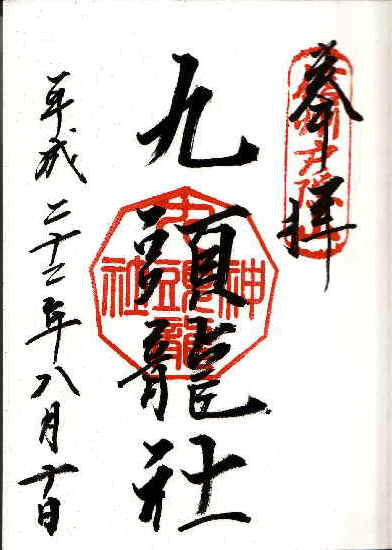 奉拝
九頭龍社
九頭龍神社
平成二十二年八月十日